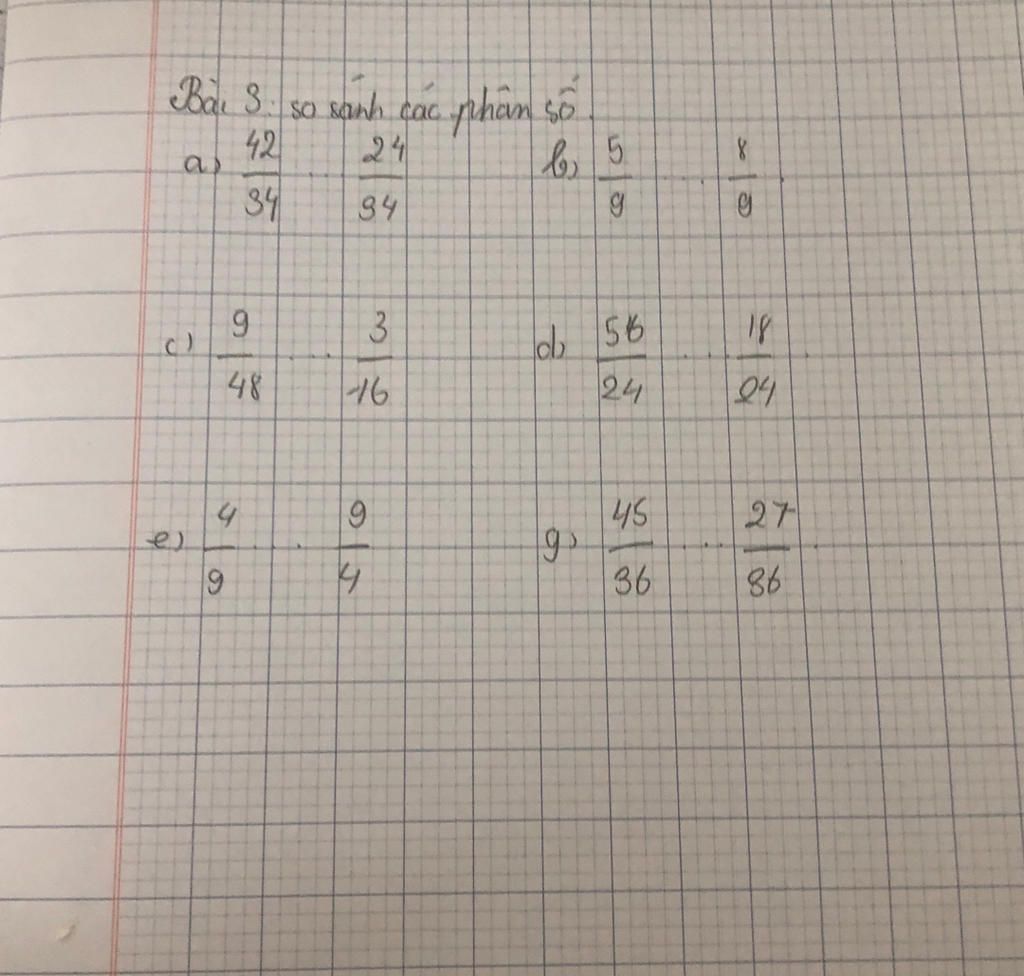 Bài 3: so sánh các phân số.
a) 42/34 ... 24/34 b) 5/9 ... 8/9.
c) 9/48 ... 3/16 d) 56/24 ... 18/24.
e) 4/9 ... 9/4 g) 45/36 ... 27/36.